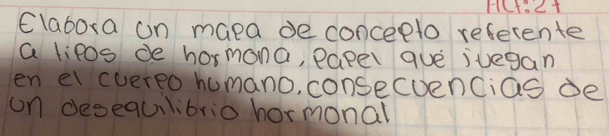 Elabora un mapa de concepto referente
a tipos de hormona, papel que juegan
en el cuerpo humano, consecuencias de
un desequilibrio hormonal